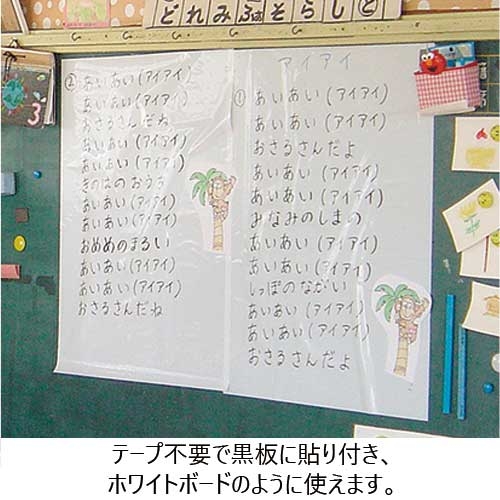 どれみふぁそらしど
アイアイ
①あいあい(アイアイ)
あいあい(アイアイ)
おさるさんだよ
あいあい(アイアイ)
あいあい(アイアイ)
みなみのしまの
あいあい(アイアイ)
あいあい(アイアイ)
しっぽのながい
あいあい(アイアイ)
あいあい(アイアイ)
おさるさんだよ
②あいあい(アイアイ)
あいあい(アイアイ)
おさるさんだね
あいあい(アイアイ)
あいあい(アイアイ)
きのはのおうち
あいあい(アイアイ)
あいあい(アイアイ)
おめめのまるい
あいあい(アイアイ)
あいあい(アイアイ)
おさるさんだね
3
テープ不要で黒板に貼り付き、
ホワイトボードのように使えます。